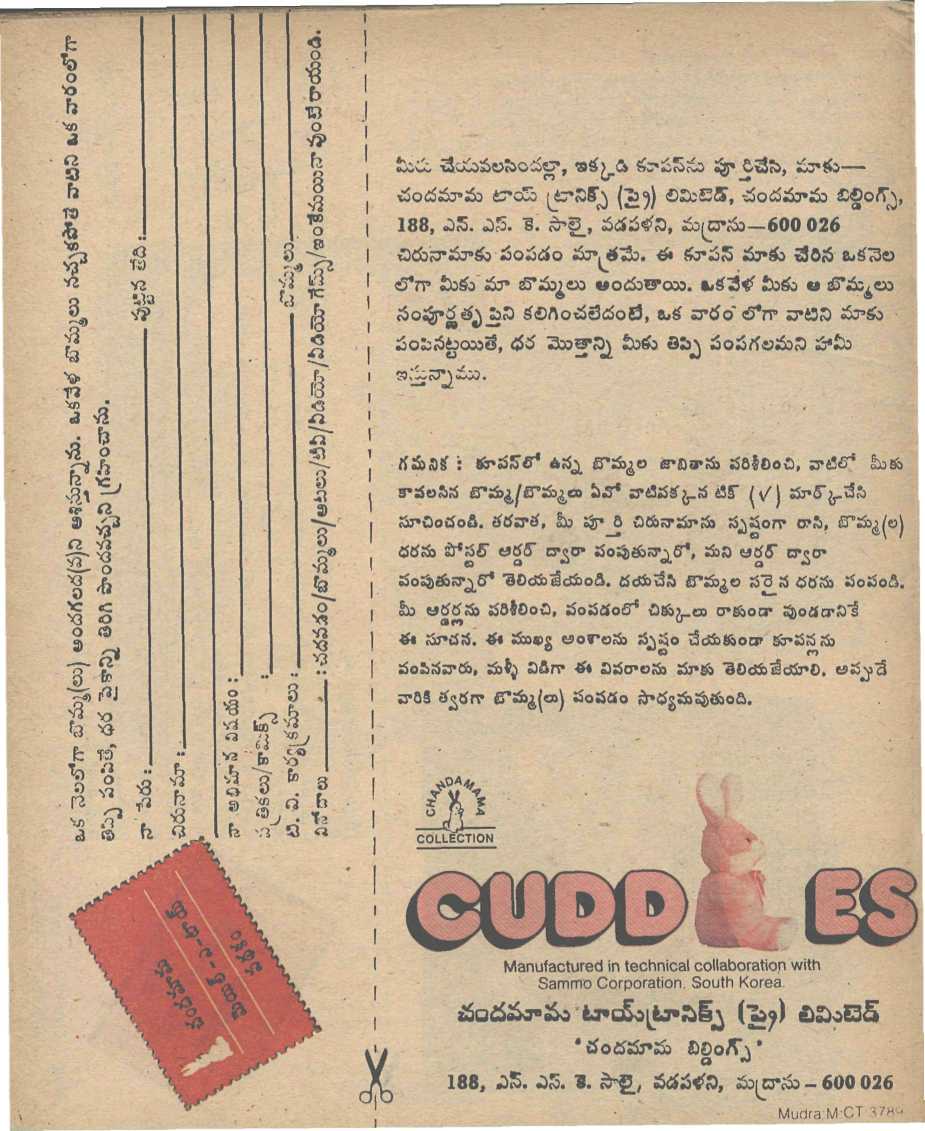 మీరు చేయవలసిందల్లా, ఇక్కడి కూపన్‌ను పూర్తిచేసి, మాకు—
చందమామ టాయ్‌ట్రానిక్స్ (ప్రై) లిమిటెడ్, చందమామ బిల్డింగ్స్,
188, ఎన్. ఎస్. కె. సాలై, వడపళని, మద్రాసు—600 026
చిరునామాకు పంపడం మాత్రమే. ఈ కూపన్ మాకు చేరిన ఒకనెల
లోగా మీకు మా బొమ్మలు అందుతాయి. ఒకవేళ మీకు ఆ బొమ్మలు
సంపూర్ణతృప్తిని కలిగించలేదంటే, ఒక వారం లోగా వాటిని మాకు
పంపినట్టయితే, ధర మొత్తాన్ని మీకు తిప్పి పంపగలమని హామీ
ఇస్తున్నాము.
గమనిక : కూపన్‌లో ఉన్న బొమ్మల జాబితాను పరిశీలించి, వాటిలో మీకు
కావలసిన బొమ్మ/బొమ్మలు ఏవో వాటిపక్కన టిక్ (✓) మార్క్ చేసి
సూచించండి. తరవాత, మీ పూర్తి చిరునామాను స్పష్టంగా రాసి, బొమ్మ(ల)
ధరను పోస్టల్ ఆర్డర్ ద్వారా పంపుతున్నారో, మని ఆర్డర్ ద్వారా
పంపుతున్నారో తెలియజేయండి. దయచేసి బొమ్మల సరైన ధరను పంపండి.
మీ ఆర్డర్లను పరిశీలించి, పంపడంలో చిక్కులు రాకుండా వుండడానికే
ఈ సూచన. ఈ ముఖ్య అంశాలను స్పష్టం చేయకుండా కూపన్లను
పంపినవారు, మళ్ళీ విడిగా ఈ వివరాలను మాకు తెలియజేయాలి. అప్పుడే
వారికి త్వరగా బొమ్మ(లు) పంపడం సాధ్యమవుతుంది.
CHANDAMAMA
COLLECTION
CUDDLES
Manufactured in technical collaboration with
Sammo Corporation. South Korea.
చందమామ టాయ్‌ట్రానిక్స్ (ప్రై) లిమిటెడ్
'చందమామ బిల్డింగ్స్'
188, ఎన్. ఎస్. కె. సాలై, వడపళని, మద్రాసు – 600 026
Mudra:M:CT 3789
ఒక నెలలోగా బొమ్మ(లు) అందగలద(వ)ని ఆశిస్తున్నాను. ఒకవేళ బొమ్మలు నచ్చకపోతే వాటిని ఒక వారంలోగా
తిప్పి పంపితే, ధర పైకాన్ని తిరిగి పొందవచ్చని గ్రహించాను.
నా పేరు : పుట్టిన తేది :
చిరునామా :
నా అభిమాన విషయం :
పత్రికలు/కామిక్స్ :
టి. వి. కార్యక్రమాలు : బొమ్మలు
వినోదాలు : చదవడం/బొమ్మలు/ఆటలు/టీవి/వీడియో/వీడియోగేమ్స్/ఇంకేమయినా వుంటే రాయండి.
చందమామ
పథకం